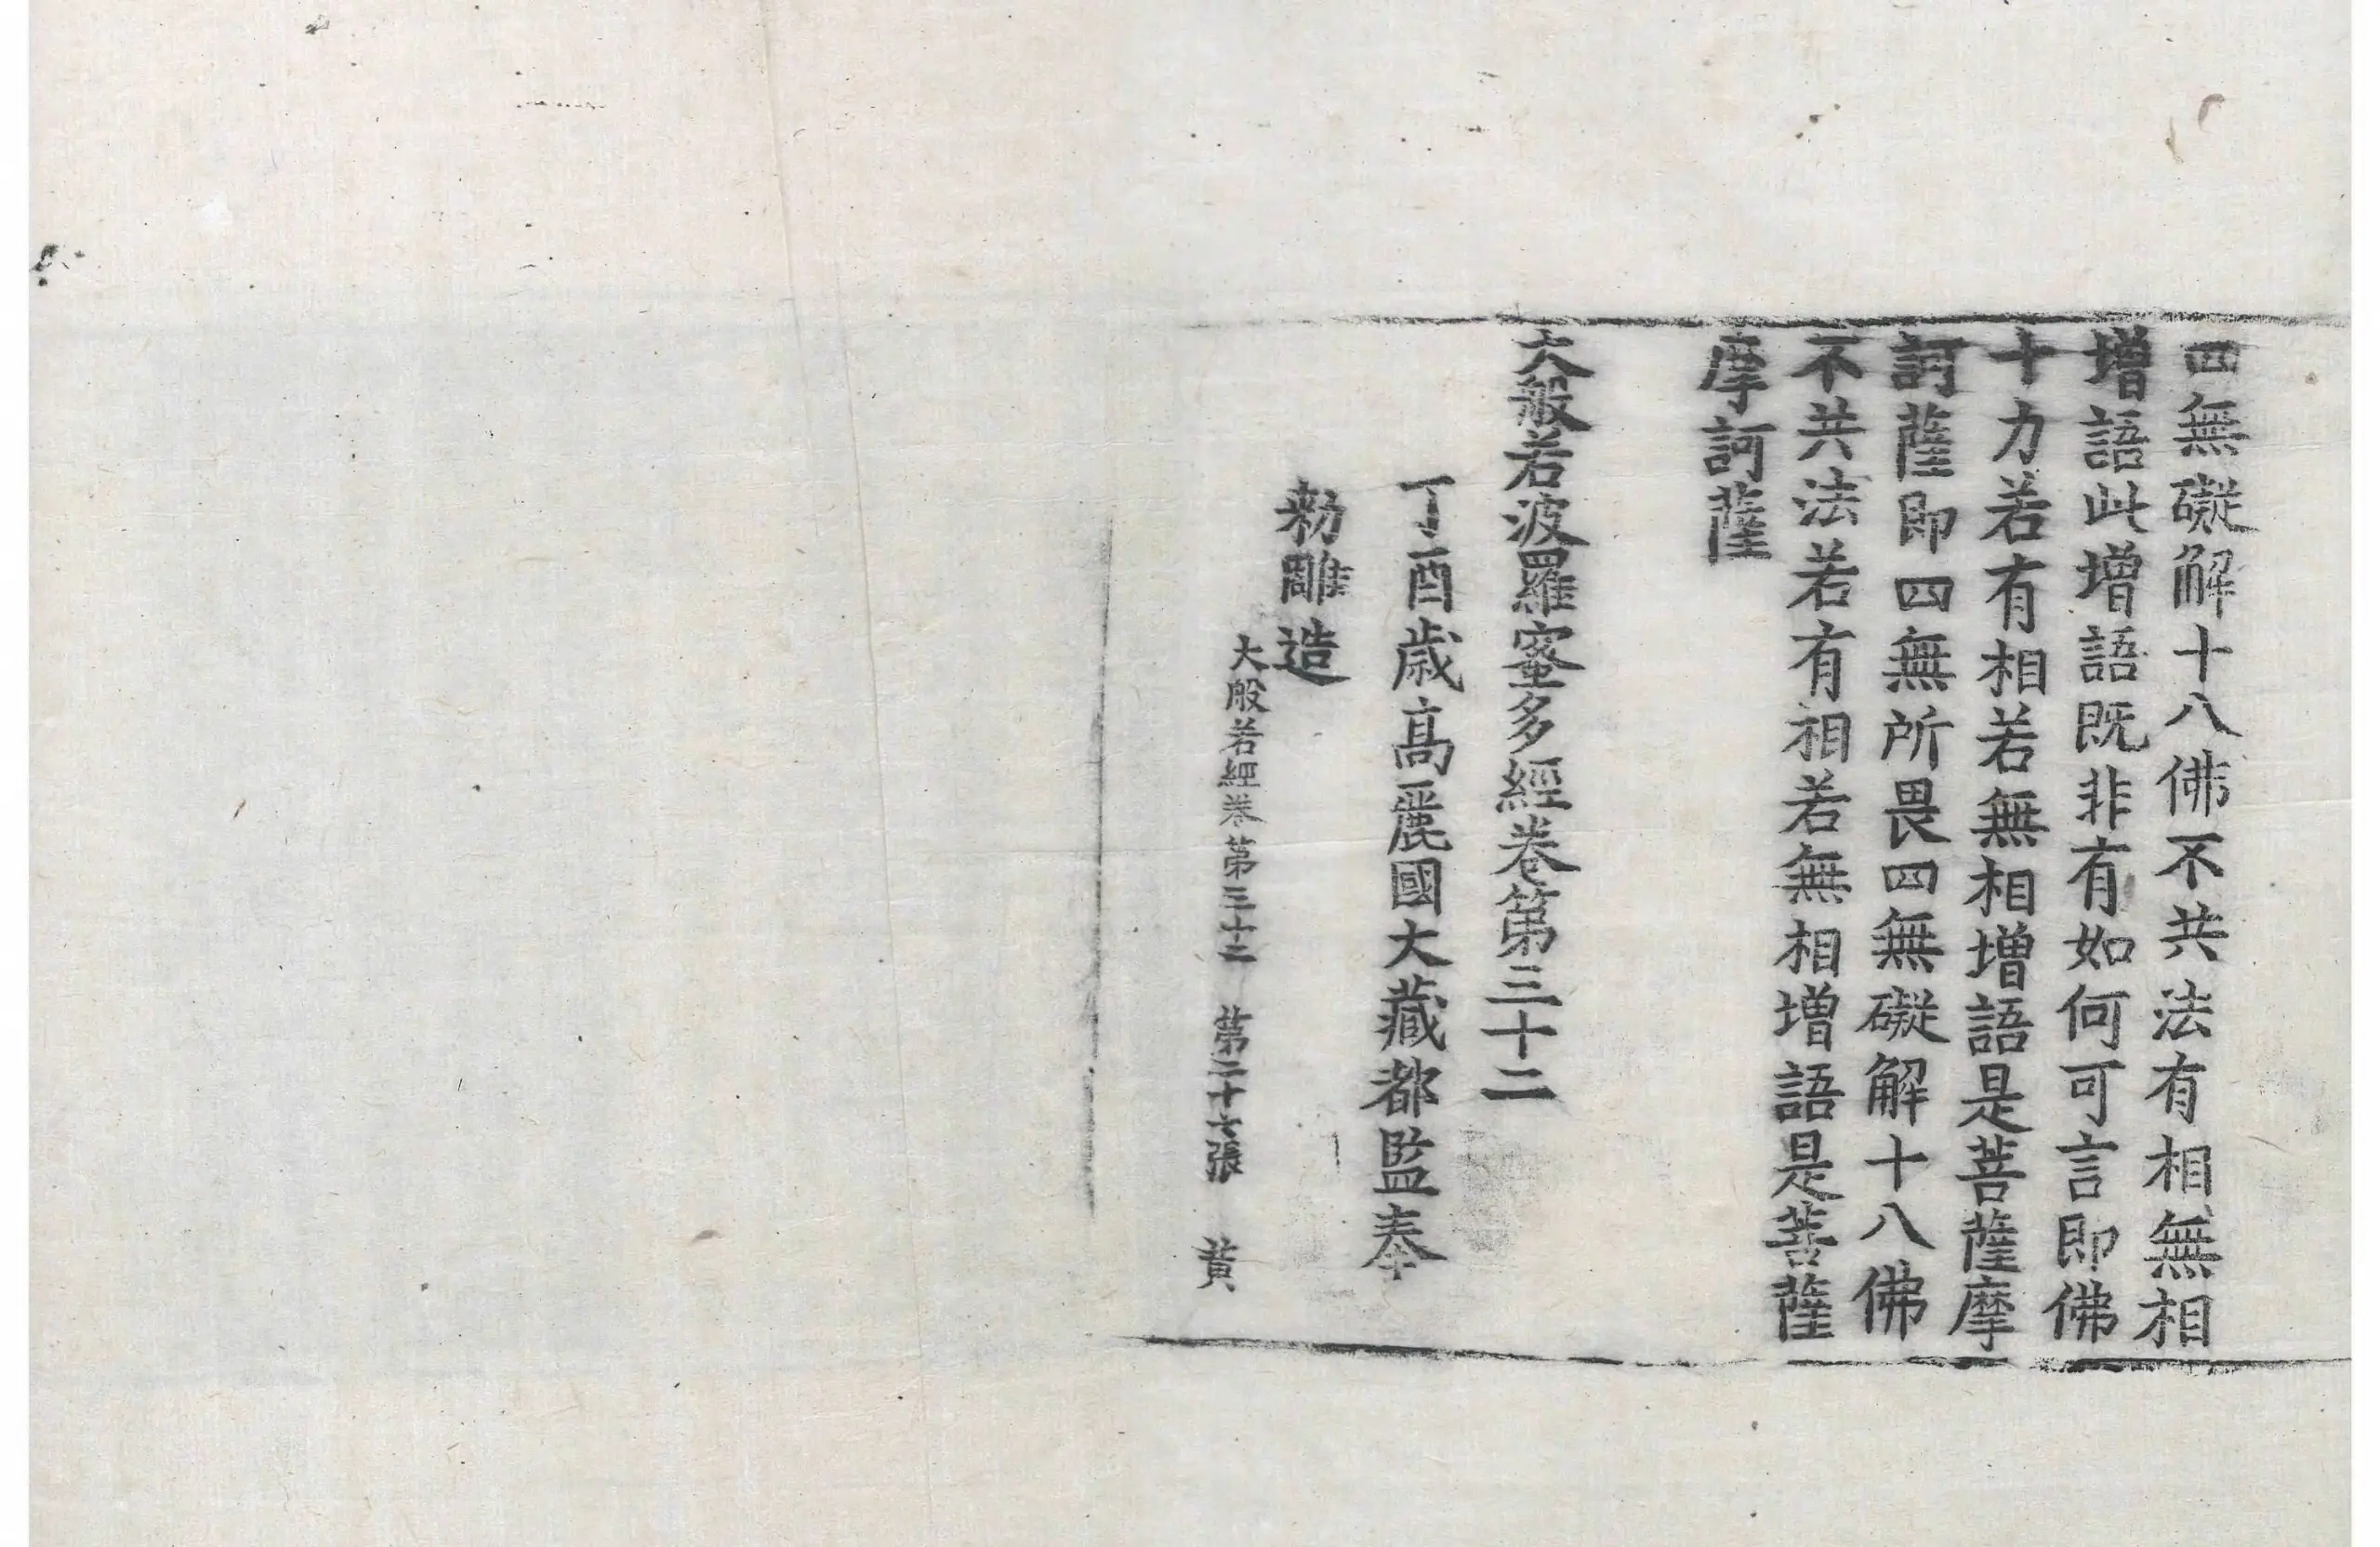 四無礙解十八佛不共法有相無相
增語此增語旣非有如何可言即佛
十力若有相若無相增語是菩薩摩
訶薩即四無所畏四無礙解十八佛
不共法若有相若無相增語是菩薩
摩訶薩
大般若波羅蜜多經卷第三十二
丁酉歲高麗國大藏都監奉
勅雕造
大般若經卷第三十二 第二十六張 黃